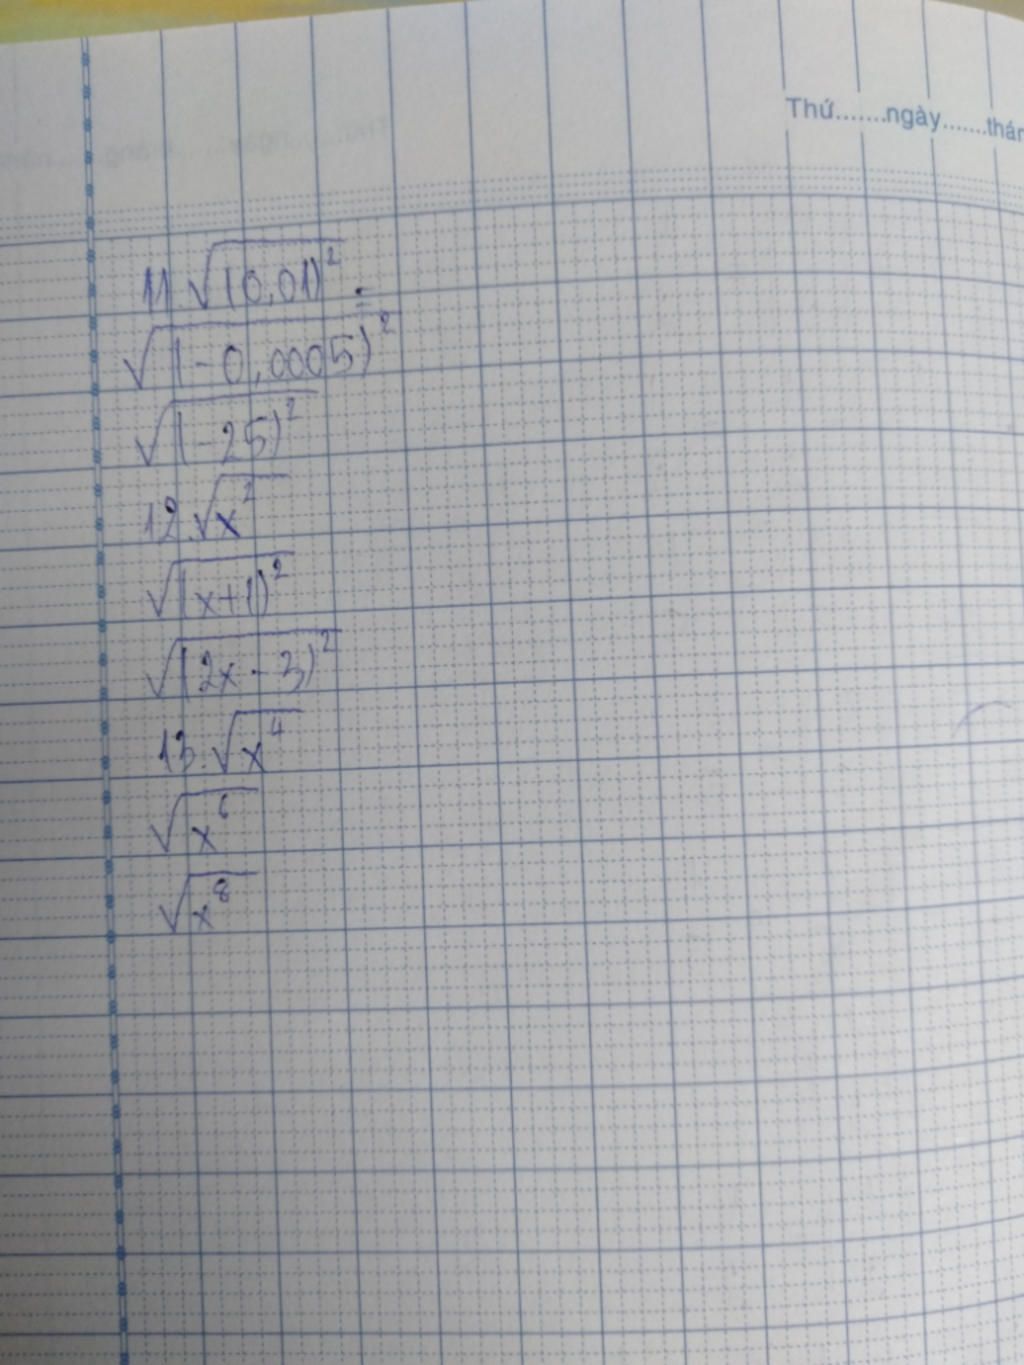 Thứ.......ngày.......thán
11. √(0,01)² =
√(-0,0005)²
√(-25)²
12. √x²
√(x+1)²
√(2x-3)²
13. √x⁴
√x⁶
√x⁸